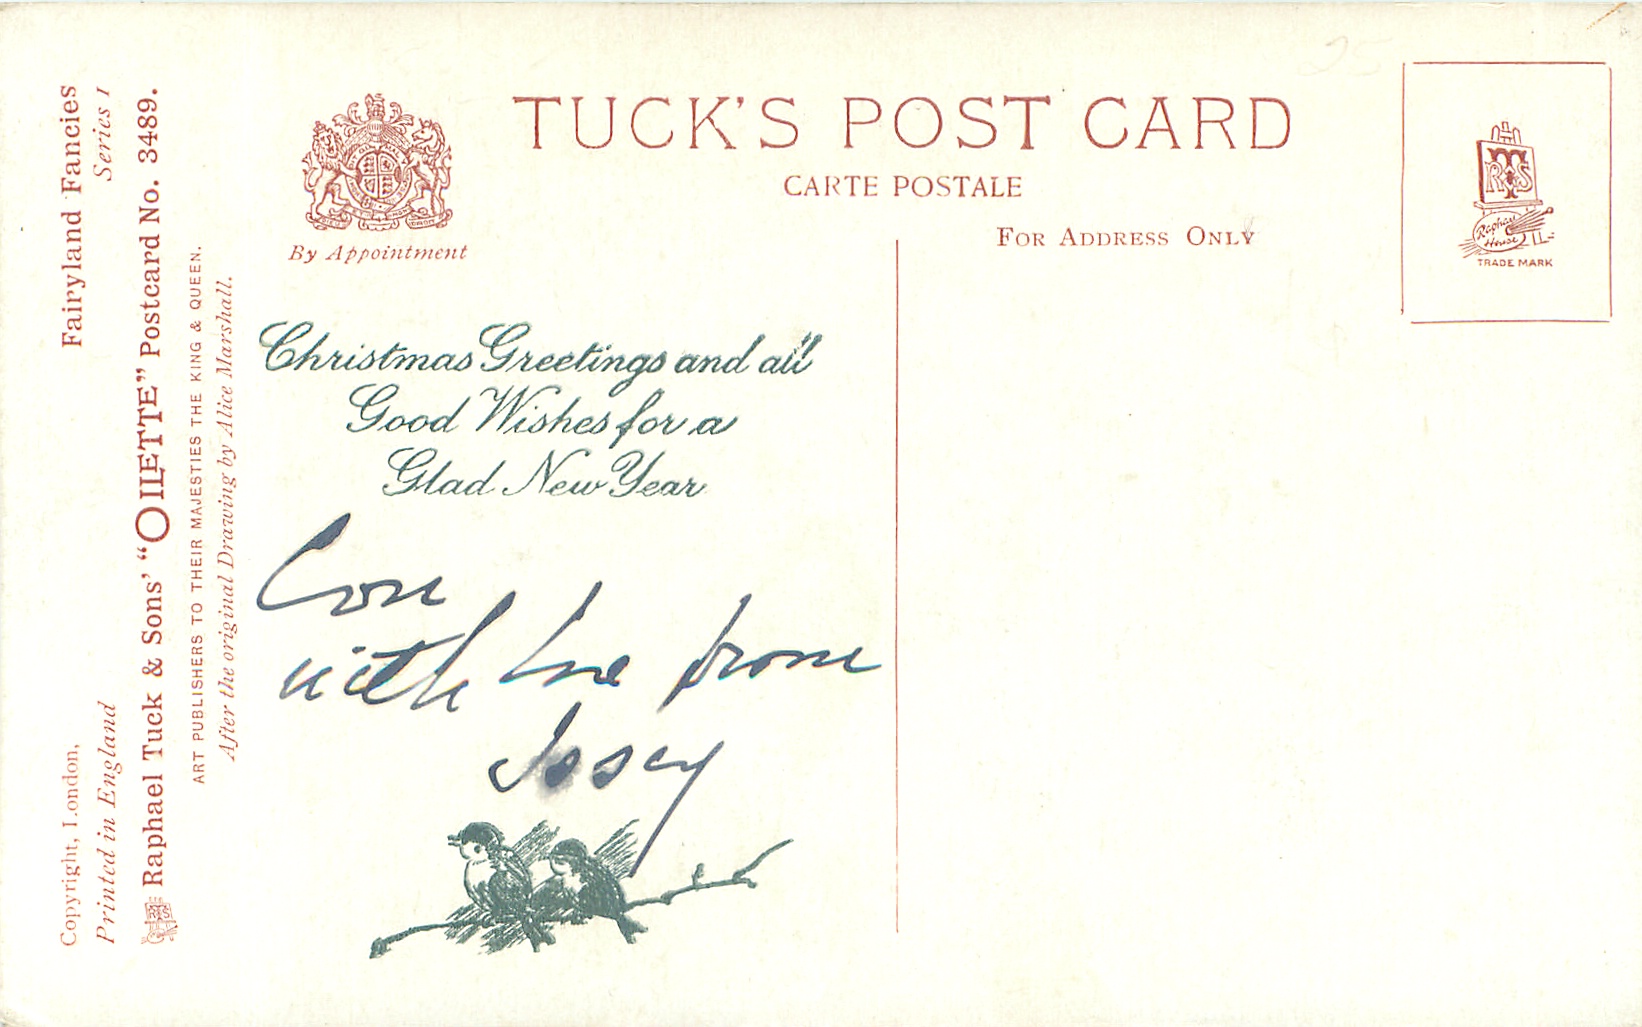 Fairyland Fancies
Series I
Copyright, London,
Printed in England
Raphael Tuck & Sons' "OILETTE" Postcard No. 3489.
ART PUBLISHERS TO THEIR MAJESTIES THE KING & QUEEN.
After the original Drawing by Alice Marshall.
By Appointment
TUCK'S POST CARD
CARTE POSTALE
FOR ADDRESS ONLY
25
RTS
Raphael
House
TRADE MARK
Christmas Greetings and all
Good Wishes for a
Glad New Year
Con
with love from
Issey